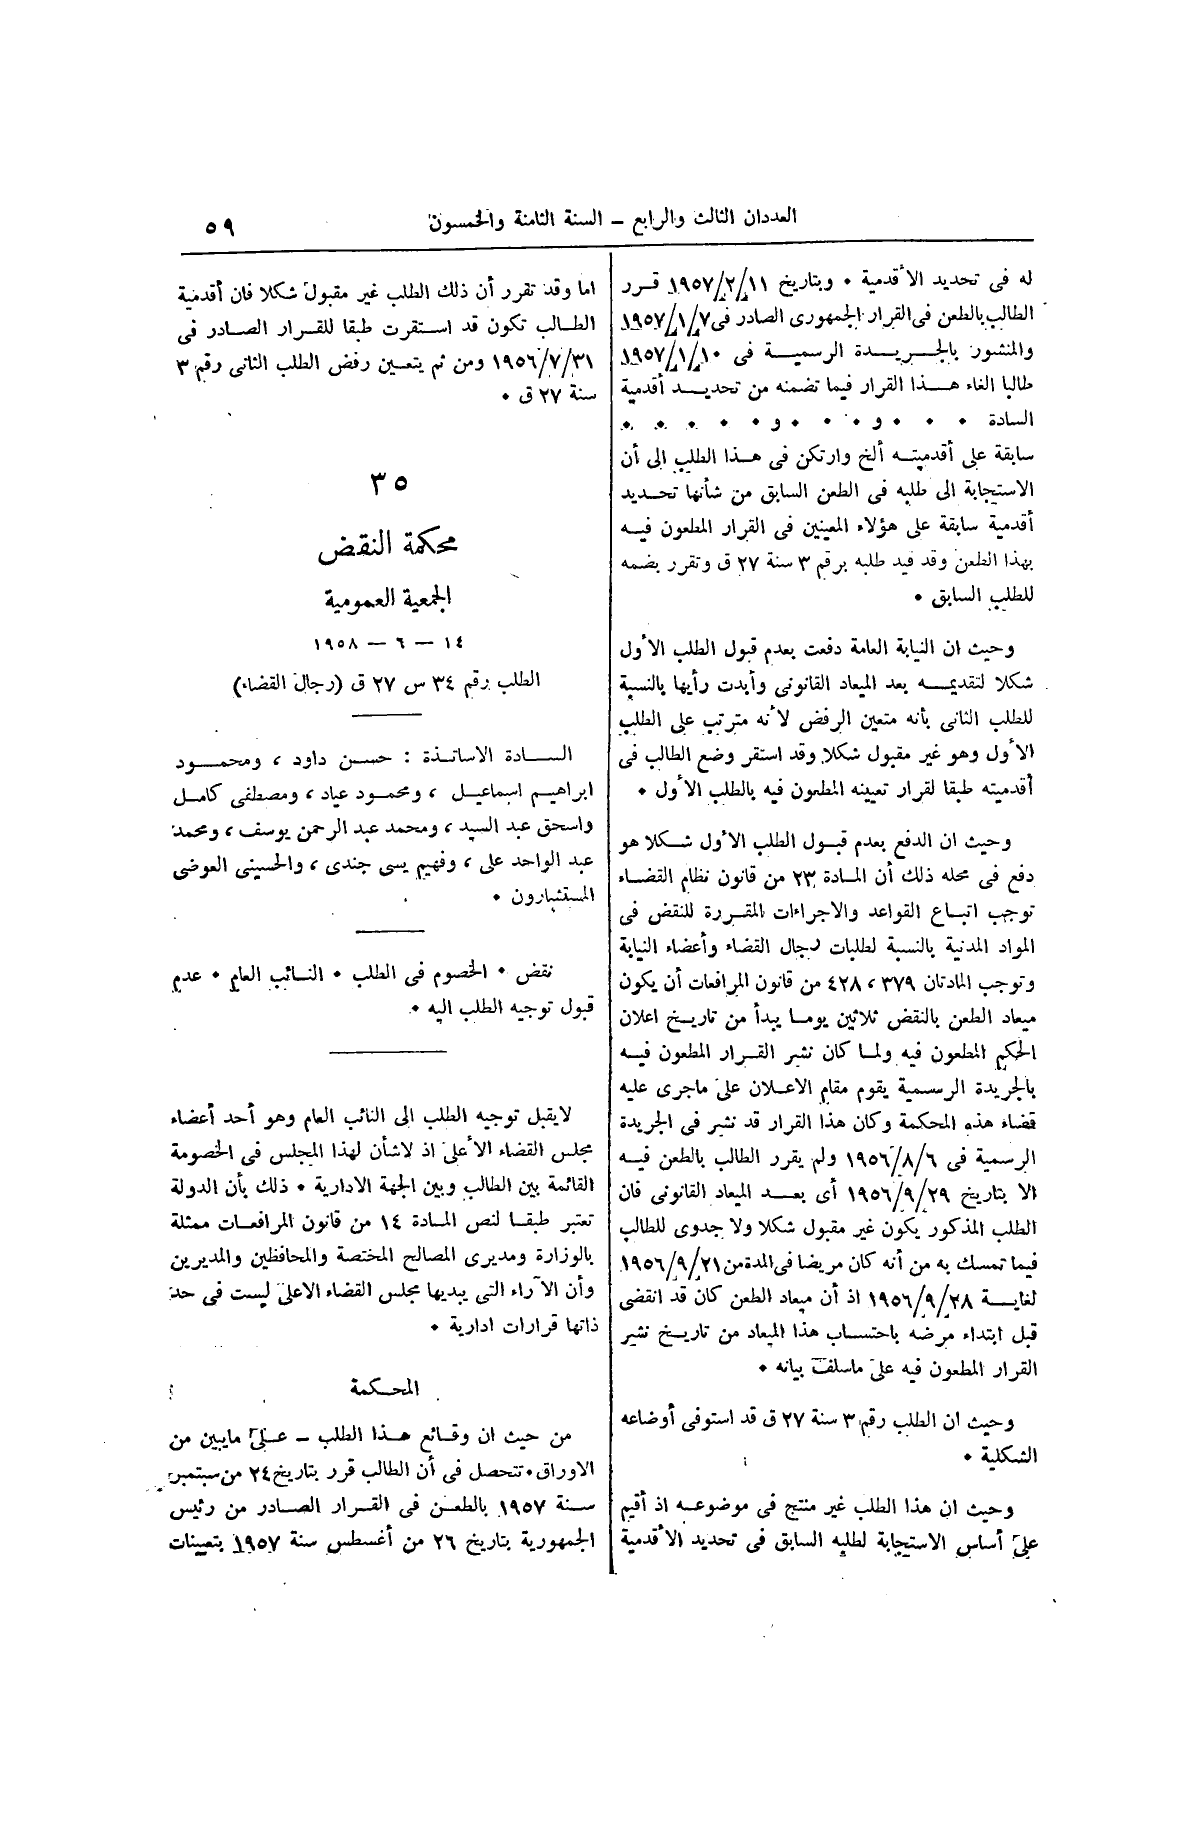 العددان الثالث والرابع – السنة الثامنة والخمسون
٥٩
له فى تحديد الأقدمية • وبتاريخ ١٩٥٧/٢/١١ قرر
الطالب بالطعن فى القرار الجمهورى الصادر فى ١٩٥٧/١/٧
والمنشور بالجريدة الرسمية فى ١٩٥٧/١/١٠
طالبا الغاء هذا القرار فيما تضمنه من تحديد أقدمية
السادة • • • و • • • و • • • • •
سابقة على أقدميته ألخ وارتكن فى هذا الطلب الى أن
الاستجابة الى طلبه فى الطعن السابق من شأنها تحديد
أقدمية سابقة على هؤلاء المعينين فى القرار المطعون فيه
بهذا الطعن وقد قيد طلبه برقم ٣ سنة ٢٧ ق وتقرر بضمه
للطلب السابق •
وحيث ان النيابة العامة دفعت بعدم قبول الطلب الأول
شكلا لتقديمه بعد الميعاد القانونى وأبدت رأيها بالنسبة
للطلب الثانى بأنه متعين الرفض لأنه مترتب على الطلب
الأول وهو غير مقبول شكلا وقد استقر وضع الطالب فى
أقدميته طبقا لقرار تعيينه المطعون فيه بالطلب الأول •
وحيث ان الدفع بعدم قبول الطلب الأول شكلا هو
دفع فى محله ذلك أن المادة ٢٣ من قانون نظام القضاء
توجب اتباع القواعد والاجراءات المقررة للنقض فى
المواد المدنية بالنسبة لطلبات رجال القضاء وأعضاء النيابة
وتوجب المادتان ٣٧٩ ، ٤٢٨ من قانون المرافعات أن يكون
ميعاد الطعن بالنقض ثلاثين يوما يبدأ من تاريخ اعلان
الحكم المطعون فيه ولما كان نشر القرار المطعون فيه
بالجريدة الرسمية يقوم مقام الاعلان على ماجرى عليه
قضاء هذه المحكمة وكان هذا القرار قد نشر فى الجريدة
الرسمية فى ١٩٥٦/٨/٦ ولم يقرر الطالب بالطعن فيه
الا بتاريخ ١٩٥٦/٩/٢٩ أى بعد الميعاد القانونى فان
الطلب المذكور يكون غير مقبول شكلا ولا جدوى للطالب
فيما تمسك به من أنه كان مريضا فى المدة من ١٩٥٦/٩/٢١
لغاية ١٩٥٦/٩/٢٨ اذ أن ميعاد الطعن كان قد انقضى
قبل ابتداء مرضه باحتساب هذا الميعاد من تاريخ نشر
القرار المطعون فيه على ماسلف بيانه •
وحيث ان الطلب رقم ٣ سنة ٢٧ ق قد استوفى أوضاعه
الشكلية •
وحيث ان هذا الطلب غير منتج فى موضوعه اذ أقيم
على أساس الاستجابة لطلبه السابق فى تحديد الأقدمية
اما وقد تقرر أن ذلك الطلب غير مقبول شكلا فان أقدمية
الطالب تكون قد استقرت طبقا للقرار الصادر فى
١٩٥٦/٧/٣١ ومن ثم يتعين رفض الطلب الثانى رقم ٣
سنة ٢٧ ق •
٣٥
محكمة النقض
الجمعية العمومية
١٤ – ٦ – ١٩٥٨
الطلب رقم ٣٤ س ٢٧ ق (رجال القضاء)
السادة الاساتذة : حسن داود ، ومحمود
ابراهيم اسماعيل ، ومحمود عياد ، ومصطفى كامل
واسحق عبد السيد ، ومحمد عبد الرحمن يوسف ، ومحمد
عبد الواحد على ، وفهيم يسى جندى ، والحسينى العوضى
المستشارون •
نقض • الخصوم فى الطلب • النائب العام • عدم
قبول توجيه الطلب اليه •
لايقبل توجيه الطلب الى النائب العام وهو أحد أعضاء
مجلس القضاء الأعلى اذ لاشأن لهذا المجلس فى الخصومة
القائمة بين الطالب وبين الجهة الادارية • ذلك بأن الدولة
تعتبر طبقا لنص المادة ١٤ من قانون المرافعات ممثلة
بالوزارة ومديرى المصالح المختصة والمحافظين والمديرين
وأن الآراء التى يبديها مجلس القضاء الاعلى ليست فى حد
ذاتها قرارات ادارية •
المحكمة
من حيث ان وقائع هذا الطلب – على مايبين من
الاوراق • تتحصل فى أن الطالب قرر بتاريخ ٢٤ من سبتمبر
سنة ١٩٥٧ بالطعن فى القرار الصادر من رئيس
الجمهورية بتاريخ ٢٦ من أغسطس سنة ١٩٥٧ بتعيينات